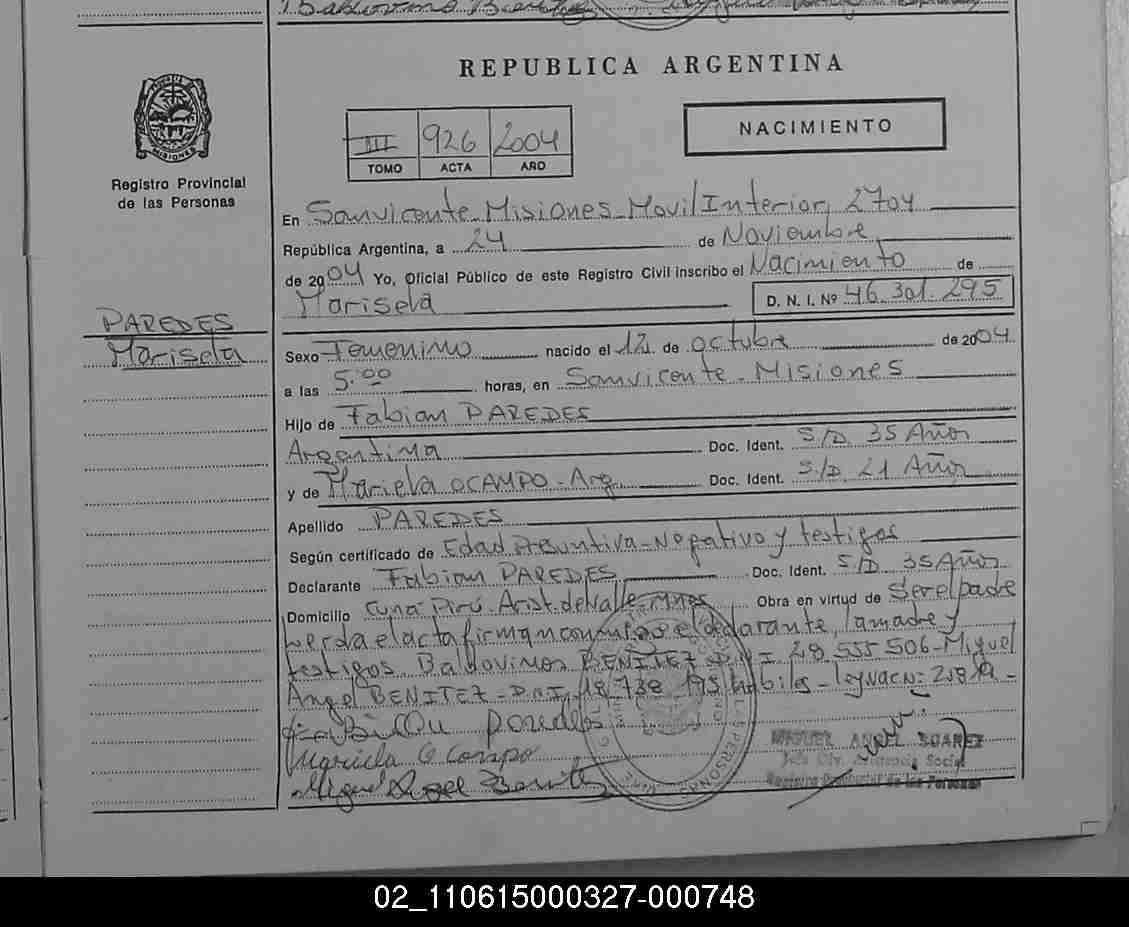 REPUBLICA ARGENTINA
MISIONES
Registro Provincial
de las Personas
III 926 2004
TOMO ACTA AÑO
NACIMIENTO
En Sanvicente Misiones Movil Interior, 2704
República Argentina, a 24 de Noviembre
de 2004 Yo, Oficial Público de este Registro Civil inscribo el Nacimiento de
Marisela D. N. I. Nº 46.301.295
PAREDES
Marisela
Sexo Femenino nacido el 12 de octubre de 2004
a las 5:00 horas, en Sanvicente - Misiones
Hijo de Fabian PAREDES
Argentina Doc. Ident. S/D 35 Años
y de Mariela OCAMPO - Arg. Doc. Ident. S/D 21 Años
Apellido PAREDES
Según certificado de Edad Presuntiva - Negativo y testigos
Declarante Fabian PAREDES Doc. Ident. S/D 35 Años
Domicilio Cuña Pirú. Arist. del Valle - Mnes Obra en virtud de Ser el padre
el acta firman el declarante, la madre y
testigos Baldovinos BENITEZ D.N.I 28.555.506 - Miguel
Angel BENITEZ - D.N.I. 18.738.195 habiles - ley
Paredes
Ocampo
Miguel Angel
MIGUEL ANGEL SUAREZ
Registro Provincial de las Personas
02_110615000327-000748